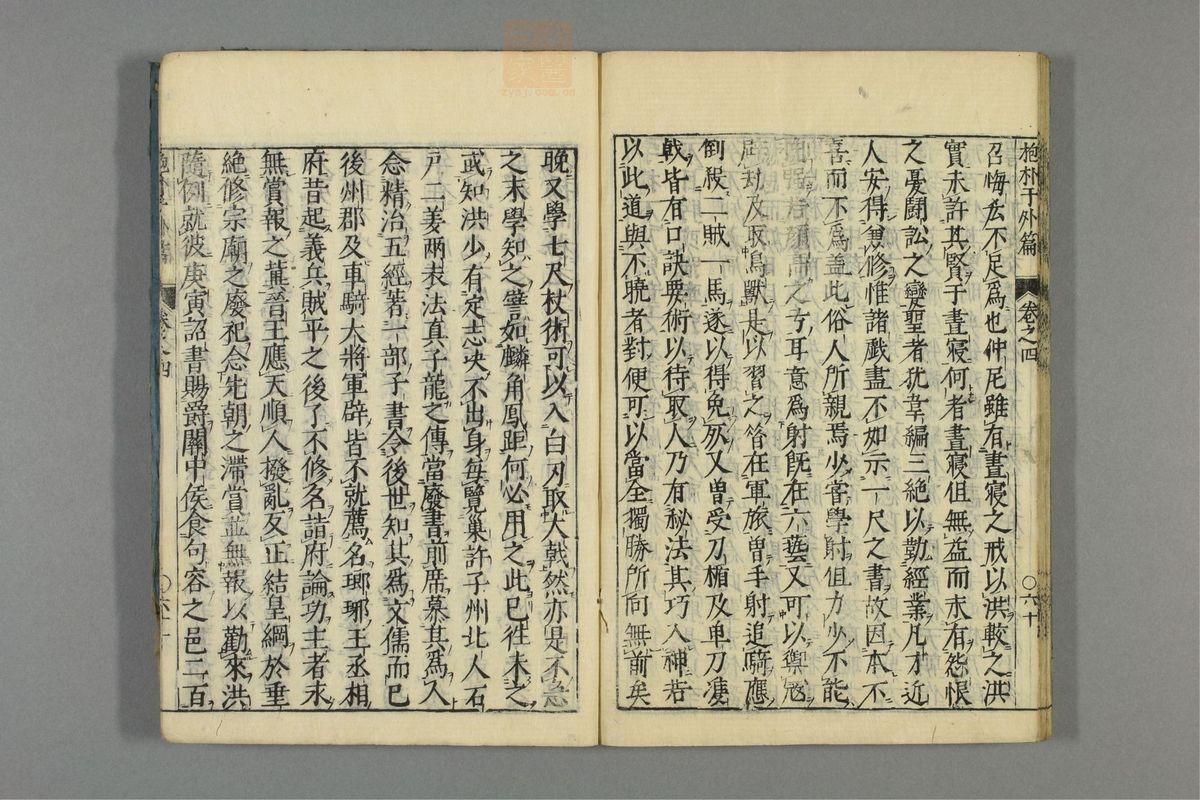 抱朴子外篇 卷之四 〇六十
召悔吝不足爲也仲尼雖有晝寢之戒以洪較之洪
實未許其賢于晝寢何者晝寢但無益而未有怨恨
之憂鬪訟之變聖者犹韋編三絶以勤經業凡才近
人安得兼修惟諸戲盡不如示一尺之書故因本不
喜而不爲盖此俗人所親焉少甞學射但力少不能
挽强若顔高之弓耳意爲射旣在六藝又可以禦寇
辟刼及取鳥獸是以習之昔在軍旅曽手射追騎應
倒殺二賊一馬遂以得免死又曽受刀楯及单刀雙
戟皆有口訣要術以待取人乃有秘法其巧入神若
以此道與不曉者對便可以當全獨勝所向無前矣
晚又學七尺杖術可以入白刃取大戟然亦是不急
之末學知之譬如麟角鳳距何必用之此已徃未之
或知洪少有定志决不出身每覽巢許子州北人石
戸二姜兩袁法真子龍之傳當廢書前席慕其爲人
念精治五經著一部子書令後世知其爲文儒而已
後州郡及車騎大將軍辟皆不就薦名瑯琊王丞相
府昔起義兵賊平之後了不修名詣府論功主者永
無賞報之冀晉王應天順人撥亂反正結皇綱於垂
絶修宗廟之廢祀念先朝之滯賞並無報以勸來洪
隨例就彼庚寅詔書賜爵關中侯食句容之邑二百